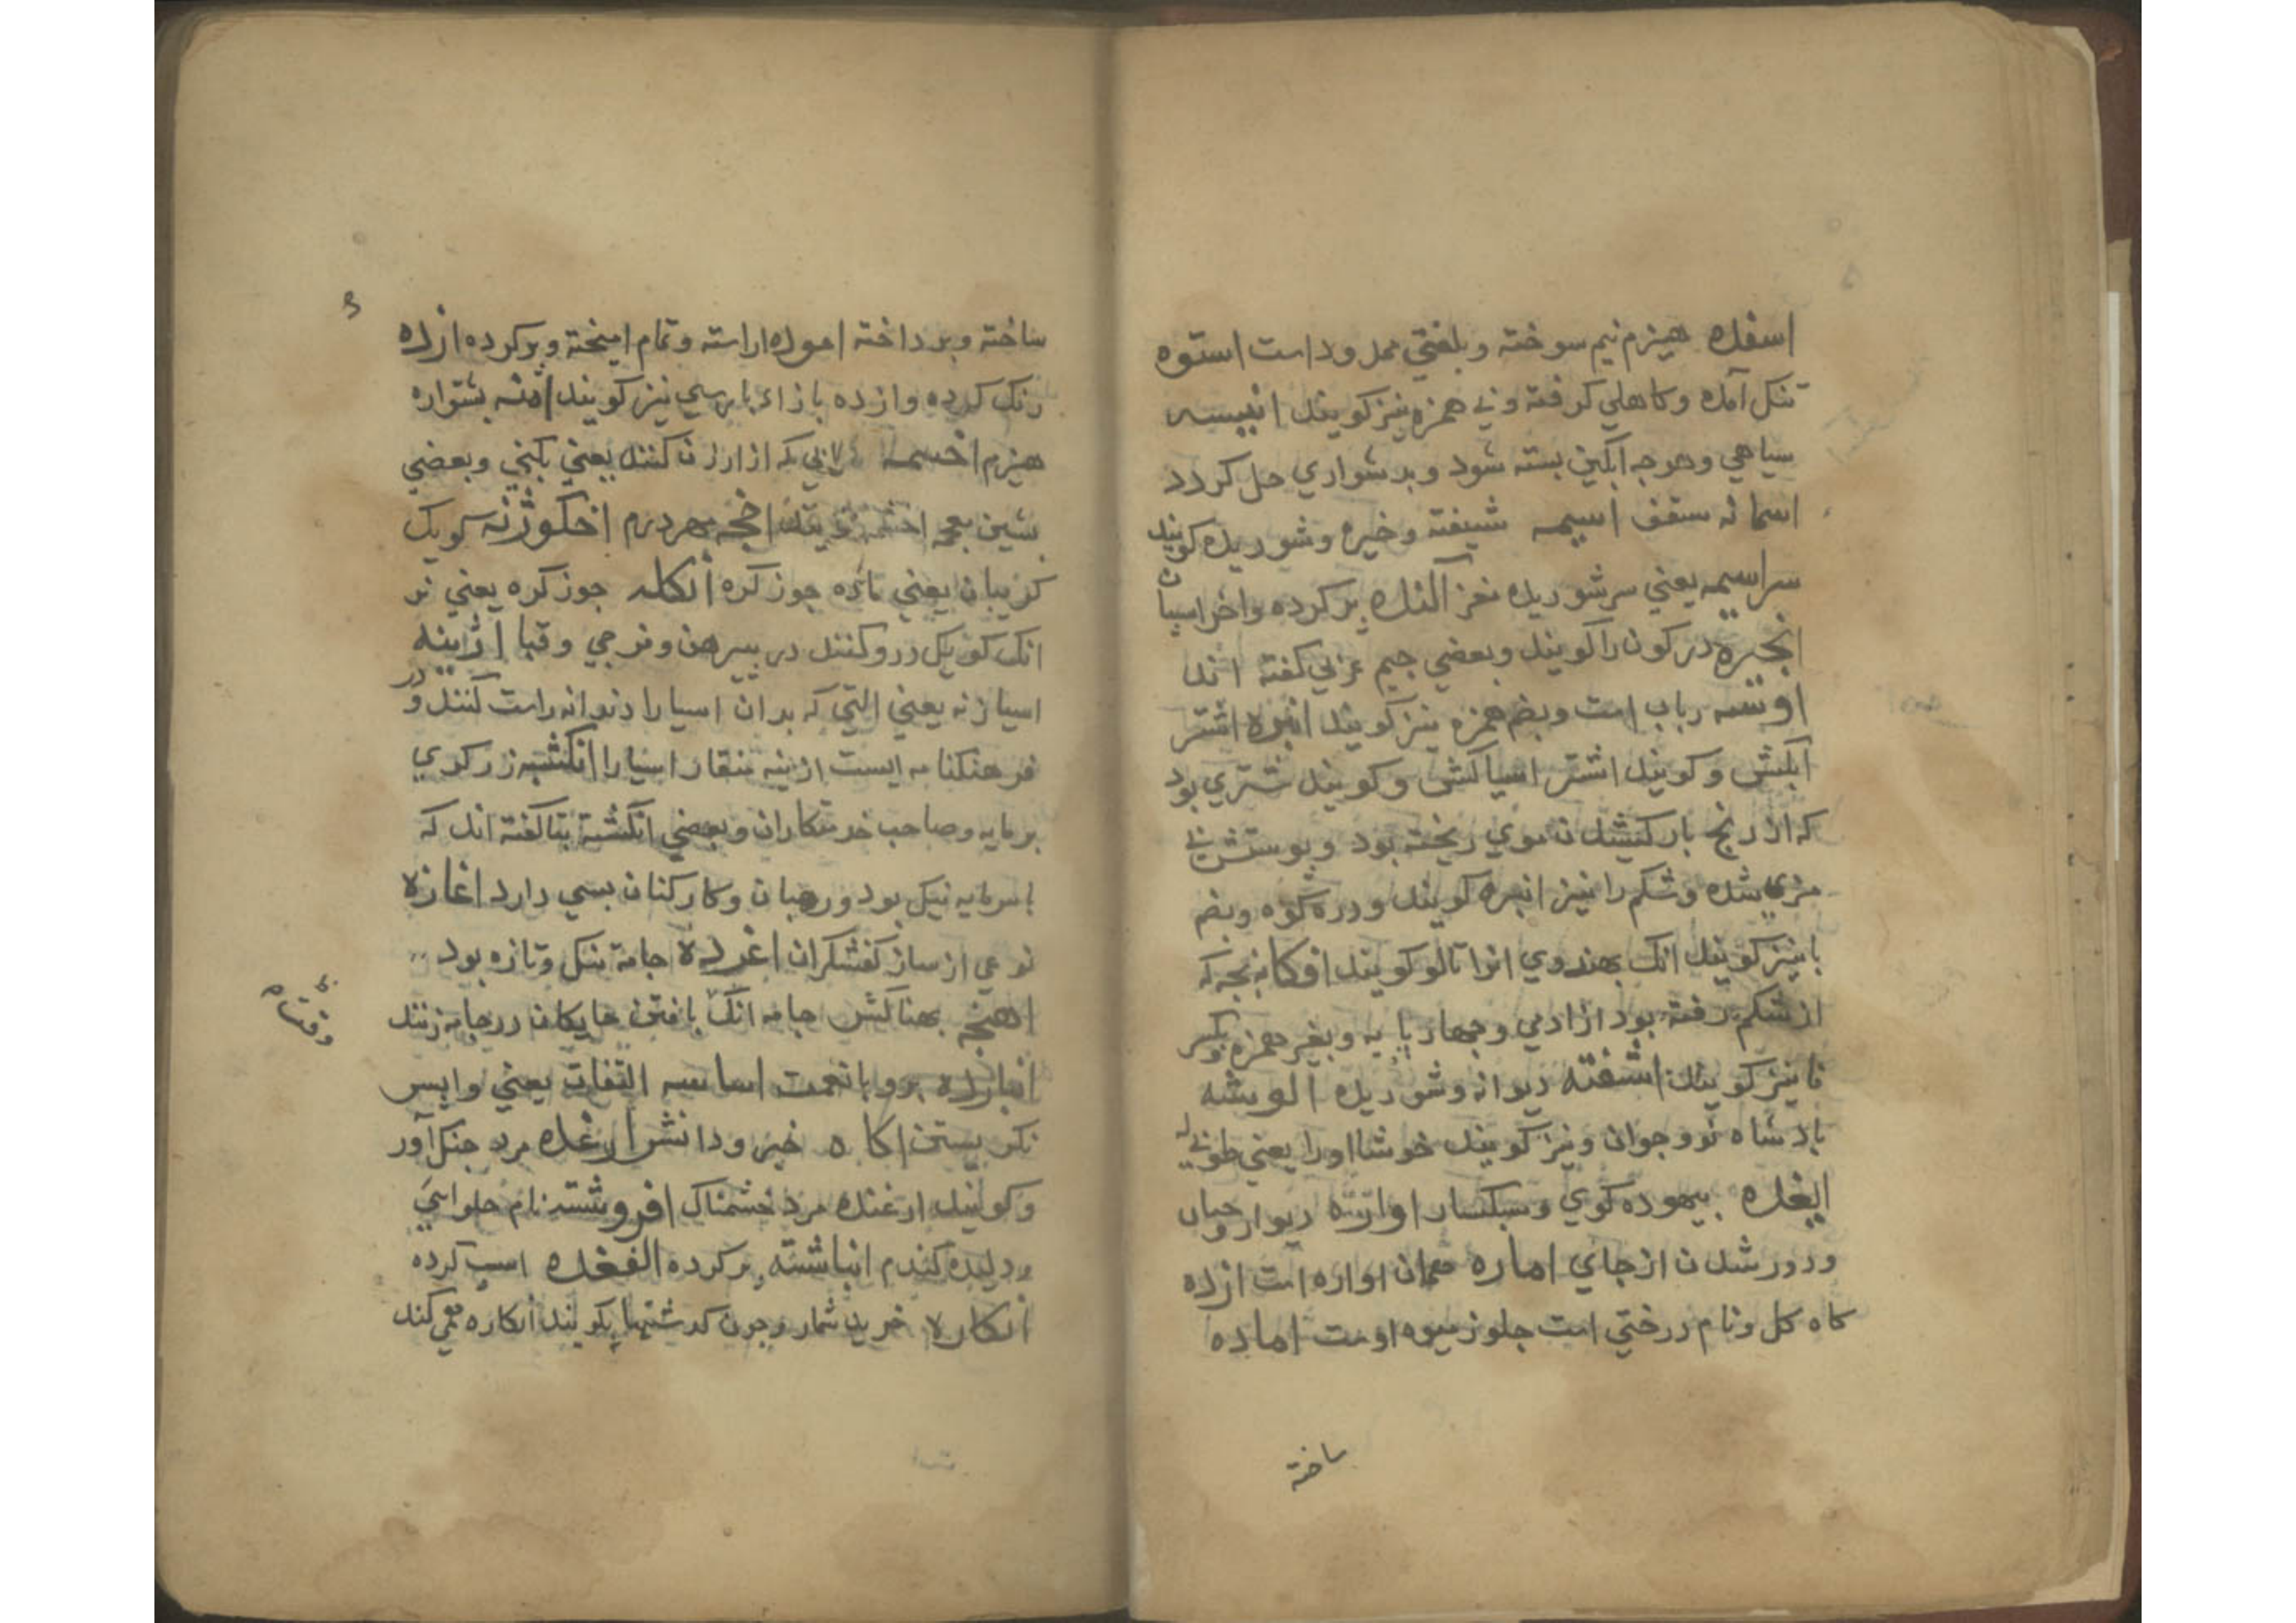 اسغده هیزم نیم سوخته و بلغتي ممدود است استوه
تنک آمده و کاهلي گرفته و بي همزه نیز کویند انبیسه
سیاهي و هرچه ابکین بسته شود و بدشواري حل کردد
اسمانه سقف اسیمه شیفته و خیره و شوریده کویند
سراسیمه یعني سرشوریده نغز آکنده پر کرده و اخر اسپان
انجیره در کون را کویند و بعضي جیم عربي کفته اند
اونسه رباب است و بضم همزه نیز کویند انبره اشتر
آبکش و کویند اشتر اسیاکش و کویند شتري بود
که از رنج بار کشیدن موي ریخته بود و پوستش بي
موي شده و شکم را نیز انبره کویند و دره کوه و بضم
با نیز کویند انک بهندوي انرا نالو کویند افکانه بچه که
از شکم رفته بود از ادمي و چهارپایه و بغیر همزه و بکسر
فا نیز کویند اشفته دیوانه و شوریده الویشه
پادشاه نو و جوان و نیز کویند خوشا اورا یعني طوبي له
ایغده بیهوده کوي و سبکسار اواره دیوار و حساب
و دور شدن از جاي اماره همان اواره است ازده
کاه کل و نام درختي است جلوز میوه اوست اماده
ساخته
ساخته و پرداخته اموده اراسته و تمام امیخته و پر کرده ازده
رنک کرده و ازده بازاء پارسي نیز کویند پشتواره
هیزم اخسمه که از ارزن کنند یعني بکني و بعضي
بشین معجمه اخشمه کویند اخجه مهر درم اخکوژنه کویک
کریبان یعني ماده جوز کره انکله جوز کره یعني نر
انک کویک درو کنند در پیرهن و فرجي و قبا اژینه
اسیازنه یعني التي که بدان اسیا را دندانه راست کنند و در
فرهنکنامه ایست ازینه منقار اسیا را انکشبه زرکري
برمایه و صاحب خدمتکاران و بعضي انکشته بتا کفته اند که
با سرمایه نیک بود و رهبان و کارکنان بسي دارد اغازه
نوعي از ساز کفشکران اغرده جامه تنک و تازه بود
اهنجه پهناکش جامه انک بافتن جایکان در جامه زنند
وقت بافتن
انبازده برو بانعمت اساسه التفات یعني واپس
نکریستن اکاه خبر و دانش ارغده مرد جنک آور
و کویند ارغنده مرد خشمناک افروشته نام حلوایي
و دلیده کندم انباشته پر کرده الفغده اسپ کرده
انکاره خرید شمار و چون کدشتها بکویند انکاره همي کند